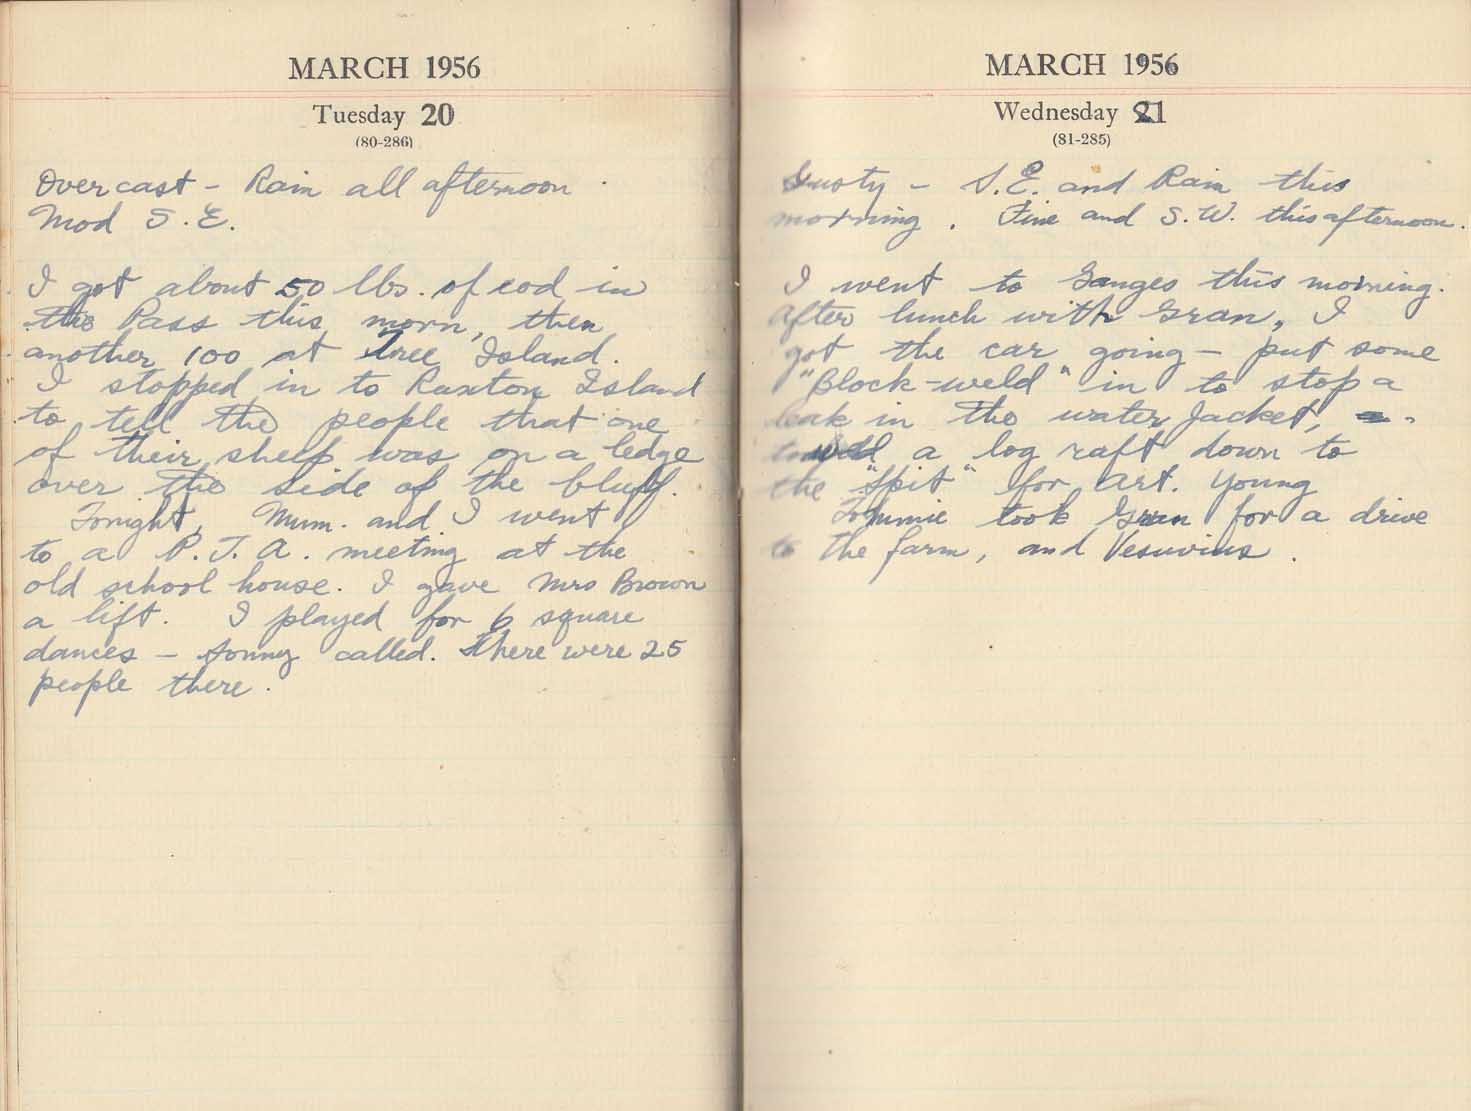 MARCH 1956
Tuesday 20
(80-286)
Overcast - Rain all afternoon.
Mod S.E.
I got about 50 lbs. of cod in
the Pass this morn, then
another 100 at Tree Island.
I stopped in to Ruxton Island
to tell the people that one
of their sheep was on a ledge
over the side of the bluff.
Tonight, Mum. and I went
to a P.T.A. meeting at the
old school house. I gave Mrs Brown
a lift. I played for 6 square
dances - Sonny called. There were 25
people there.
MARCH 1956
Wednesday 21
(81-285)
Gusty - S.E. and Rain this
morning. Fine and S.W. this afternoon.
I went to Ganges this morning.
After lunch with Gran, I
got the car going - put some
"Block-weld" in to stop a
leak in the water jacket,
a log raft down to
the "Spit" for Art. Young
Tommie took Gran for a drive
to the farm, and Vesuvius.